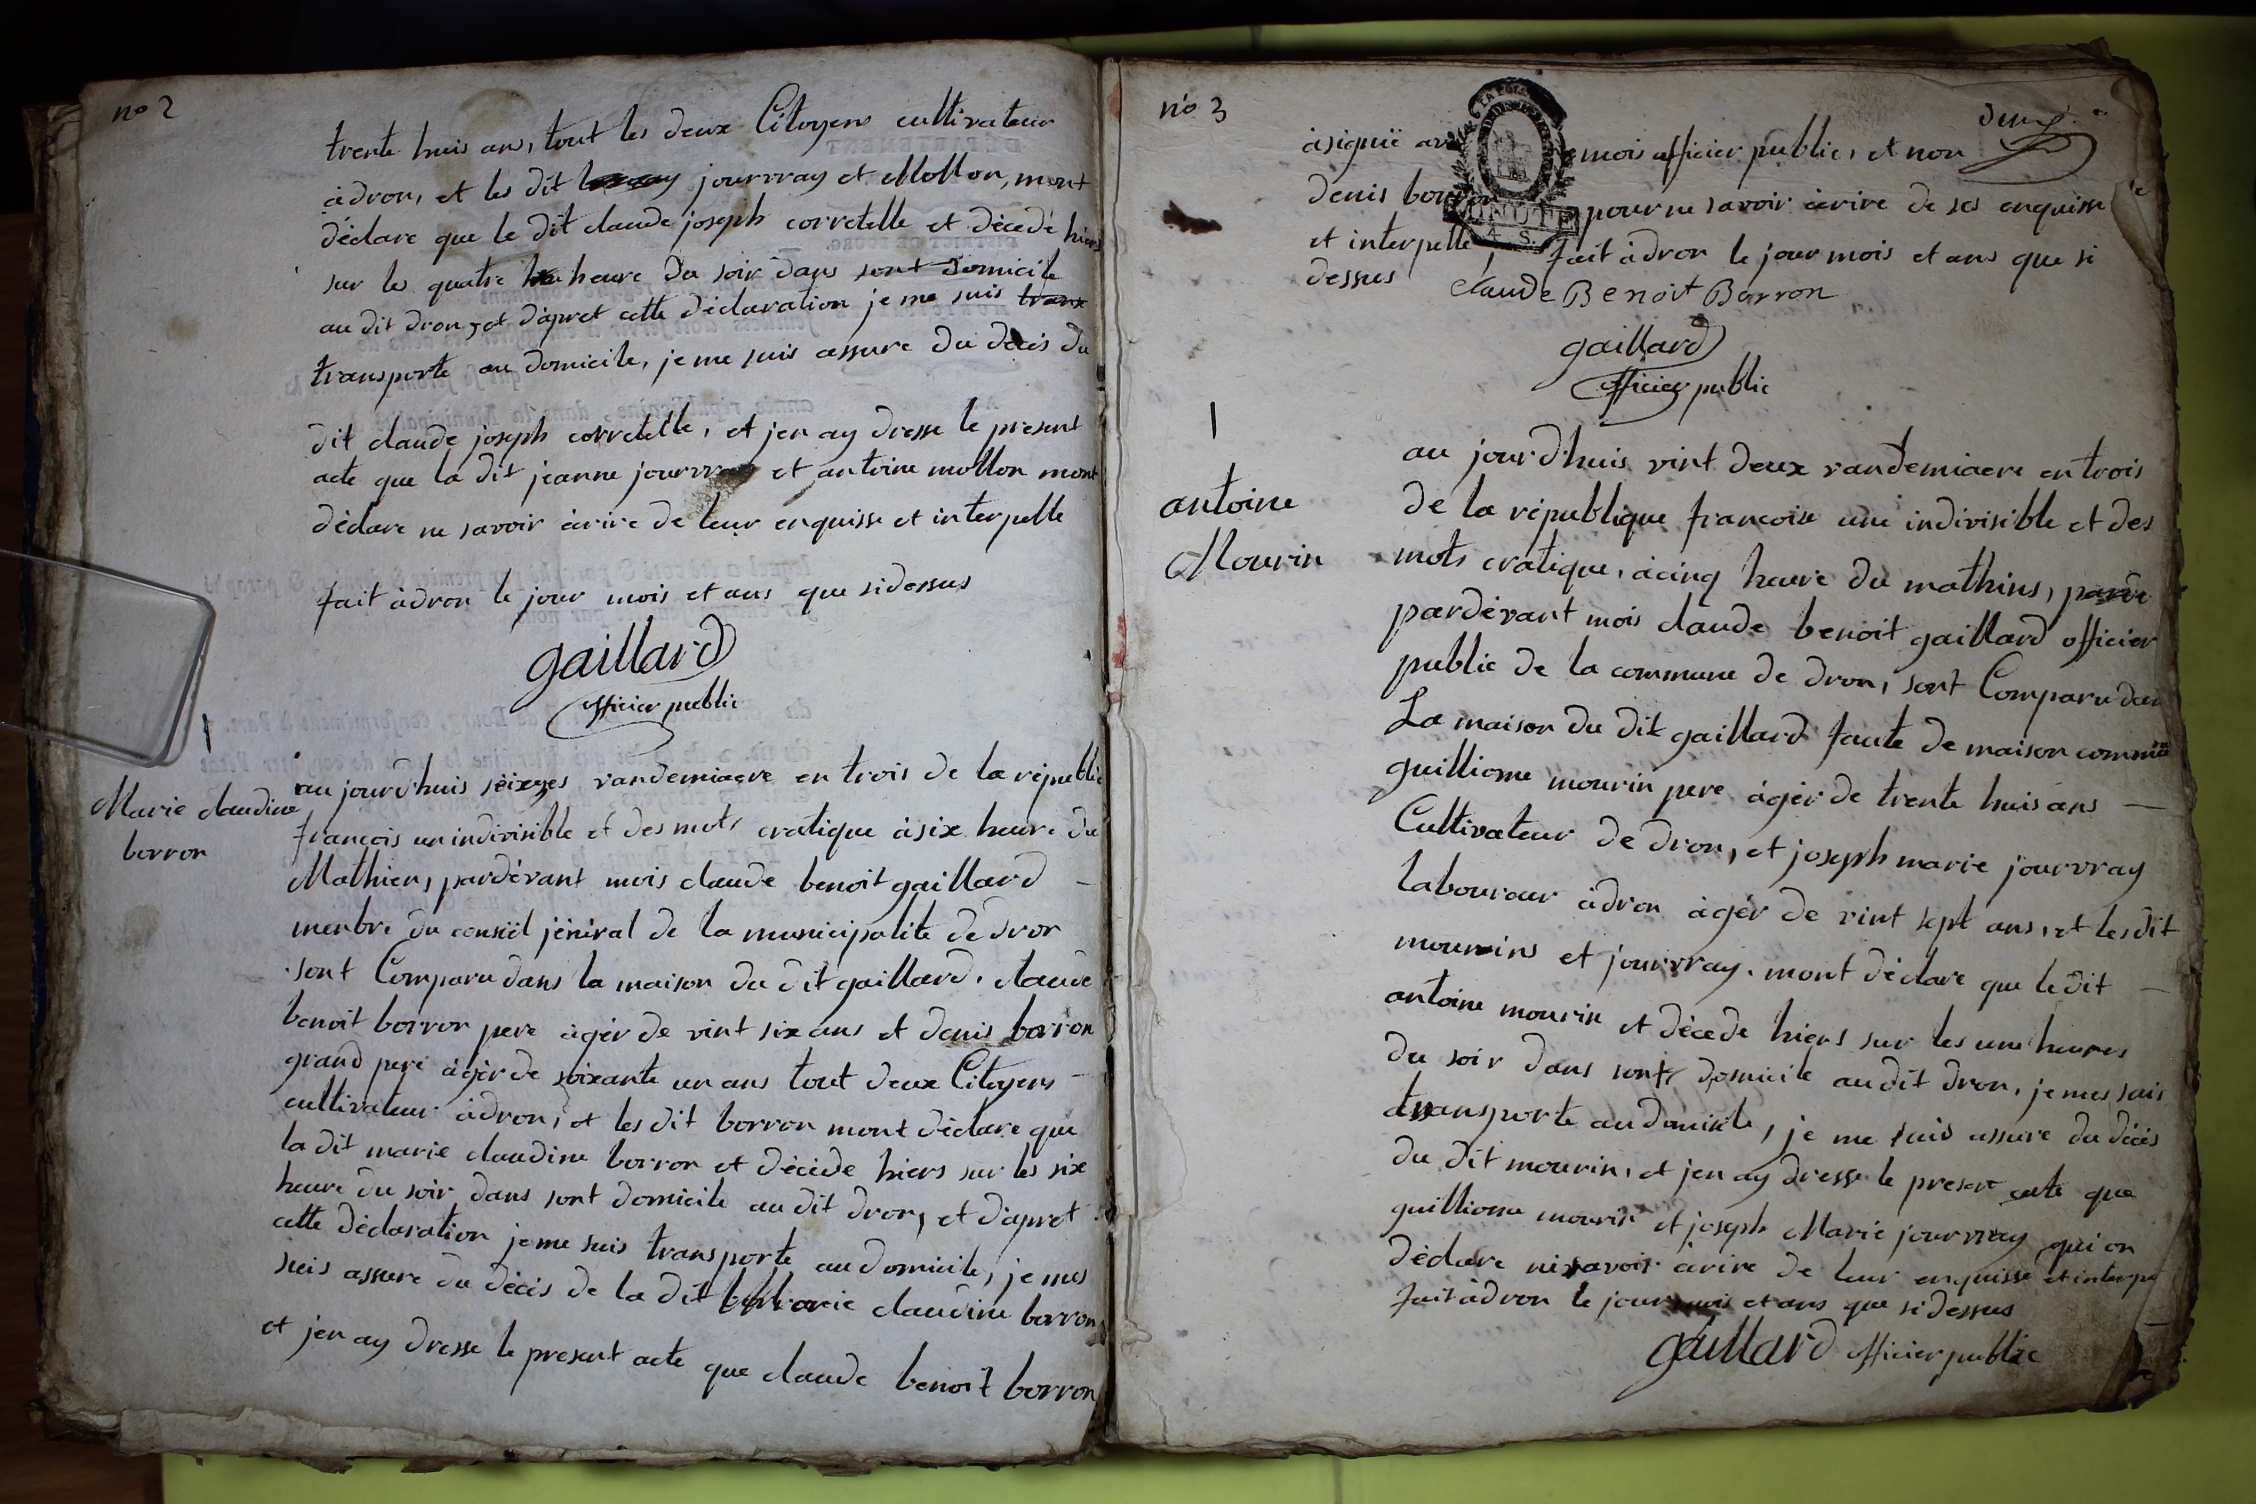 no 2
trente huis ans, tout les deux Citoyens cultivateur
à dron, et les dit jourvray et Mollon, mont
déclare que le dit claude joseph corretelle et décedé hiers
sur les quatre heure du soir dans sont domicile
au dit dron, et d'apret cette déclaration je me suis trans
transporte au domicile, je me suis assure du décis du
dit claude joseph corretelle, et jen ay dresse le present
acte que la dit jeanne jourvray et antoine mollon mont
déclare ne savoir ècrire de leur enquisse et interpelle
fait à dron le jour mois et ans que sidessus
gaillard
officier public
1
Marie claudine
borron
au jourd'huis seizes vandemiaere en trois de la républic
françois un indivisible et des mots cratique à six heure du
Mathiens, pardévant mois claude benoit gaillard
menbre du conseil jéniral de la municipalite de dron
sont Comparu dans la maison du dit gaillard, claude
benoit borron pere àgér de vint six ans et denis borron
grand pere àgér de soixante un ans tout deux Citoyens
cultivateur à dron, et les dit borron mont déclare que
la dit marie claudine borron et décéde hiers sur les six
heure du soir dans sont domicile au dit dron, et d'apret
cette déclaration je me suis transporte au domicile, je mes
suis assure du décis de la dit marie claudine borron
et jen ay dresse le present acte que claude benoit borron
no 3
à signiè mois officier public, et non
denis borron pour ne savoir ècrire de ses enquisse
et interpelle, fait à dron le jour mois et ans que si
dessus
claude Benoit Borron
gaillard
officier public
1
antoine
Mourin
au jourd'huis vint deux vandemiaere en trois
de la république françoise une indivisible et des
mots cratique, à cinq heure du mathins,
pardévant mois claude benoit gaillard officier
public de la commune de dron, sont Comparu dan
La maison du dit gaillard faute de maison commune
guilliome mourin pere àgér de trente huis ans
Cultivateur de dron, et joseph marie jourvray
laboureur à dron àgér de vint sept ans, et les dit
mourins et jourvray, mont déclare que le dit
antoine mourin et décede hiers sur les une heures
du soir dans sont domicile au dit dron, je mes suis
transporte au domicile, je me suis assure du décis
du dit mourin, et jen ay dresse le present acte que
guilliome mourin et joseph Marie jourvray qui on
déclare ni savoir ècrire de leur enquisse et interpe
fait à dron le jour mois et ans que sidessus
gaillard officier public